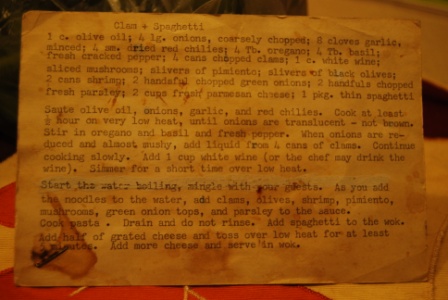 Clam + Spaghetti
1 c. olive oil; 4 lg. onions, coarsely chopped; 8 cloves garlic,
minced; 4 sm. dried red chilies; 4 Tb. oregano; 4 Tb. basil;
fresh cracked pepper; 4 cans chopped clams; 1 c. white wine;
sliced mushrooms; slivers of pimiento; slivers of black olives;
2 cans shrimp; 2 handfuls chopped green onions; 2 handfuls chopped
fresh parsley; 2 cups fresh parmesan cheese; 1 pkg. thin spaghetti
Saute olive oil, onions, garlic, and red chilies. Cook at least
½ hour on very low heat, until onions are translucent, not brown.
Stir in oregano and basil and fresh pepper. When onions are re-
duced and almost mushy, add liquid from 4 cans of clams. Continue
cooking slowly. Add 1 cup white wine (or the chef may drink the
wine). Simmer for a short time over low heat.
Start the water boiling, mingle with your guests. As you add
the noodles to the water, add clams, olives, shrimp, pimiento,
mushrooms, green onion tops, and parsley to the sauce.
Cook pasta. Drain and do not rinse. Add spaghetti to the wok.
Add half of grated cheese and toss over low heat for at least
minutes. Add more cheese and serve in wok.